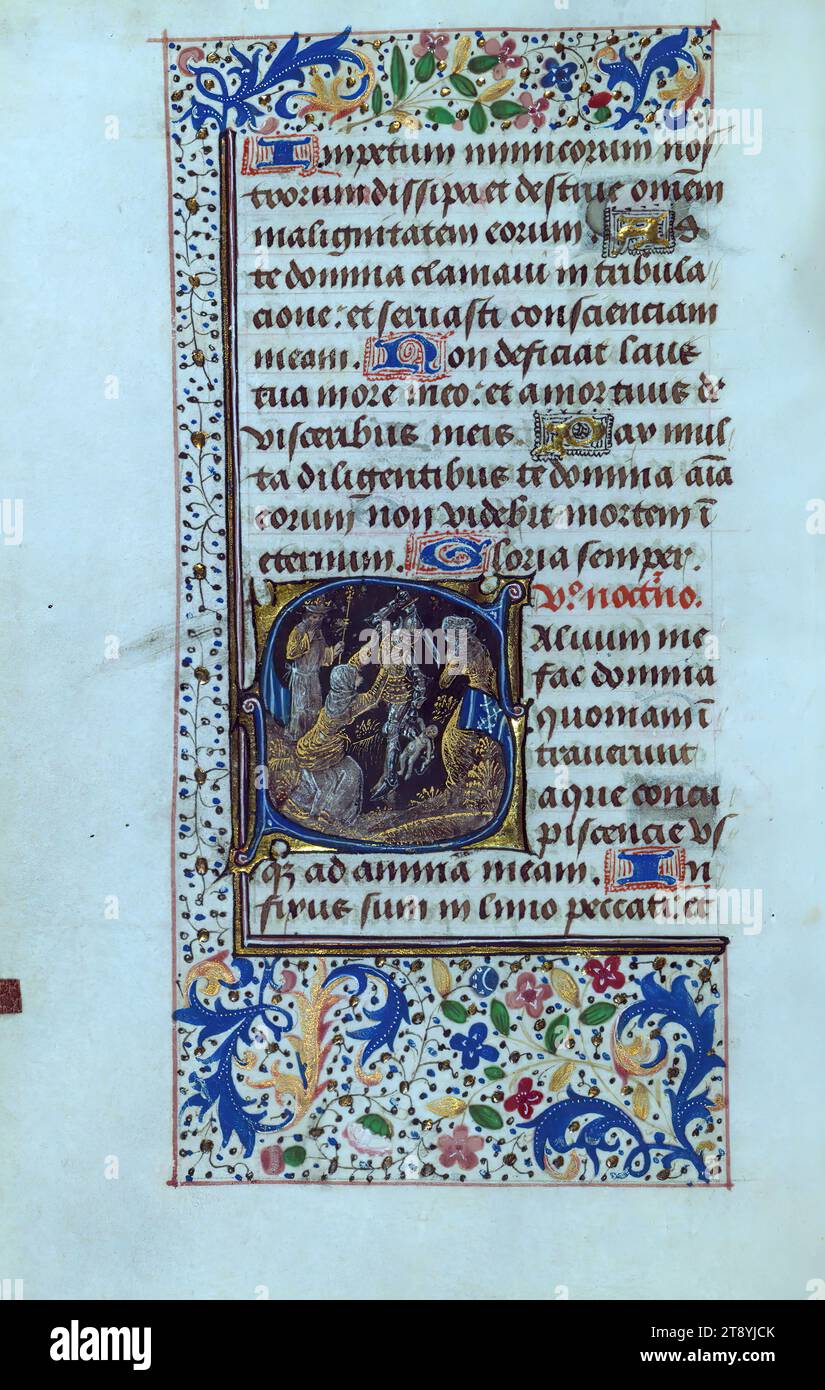 Impetum inimicorum nos
trorum dissipa et destrue omẽm
malignitatem eorum. Ad
te domina clamaui in tribula
cione: et seruasti conscienciam
meam. Non deficiat laus
tua in ore meo: et amor tuus de
visceribus meis. Pax mul
ta diligentibus te domina aĩa
eorum non videbit mortem ĩ
eternum. Gloria semper.
Vs. nocturno.
Saluum me
fac domina
quoniam ĩ
trauerunt
aque concu
piscencie vs
qz ad anima meam. In
fixus sum in limo peccati et
alamy
Image ID: 2T8YJCK
www.alamy.com